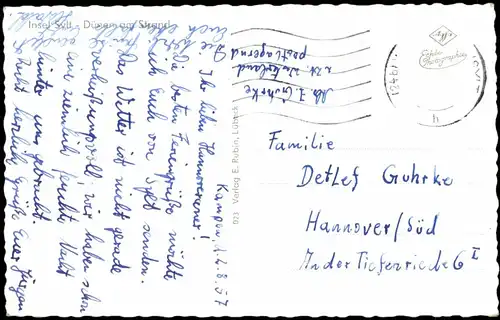 Insel Sylt - Dünen am Strand
Kampen, d. 2.8.57
Ihr lieben Hannoveraner!
Die besten Feriengrüße möchte
ich Euch von Sylt senden.
Das Wetter ist nicht gerade
verheißungsvoll; wir haben schon
eine ziemlich feuchte Nacht
hinter uns gebracht.
Recht herzliche Grüße Euer Jürgen
Abs. J. Guhrke
z.Zt. Westerland
postlagernd
923 Verlag E. Rubin, Lübeck
Echte
Photographie
h
Familie
Detlef Guhrke
Hannover/Süd
In der Tiefenriede 6 I